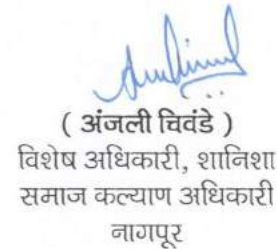 ( अंजली चिवंडे )
विशेष अधिकारी, शानिशा
समाज कल्याण अधिकारी
नागपूर